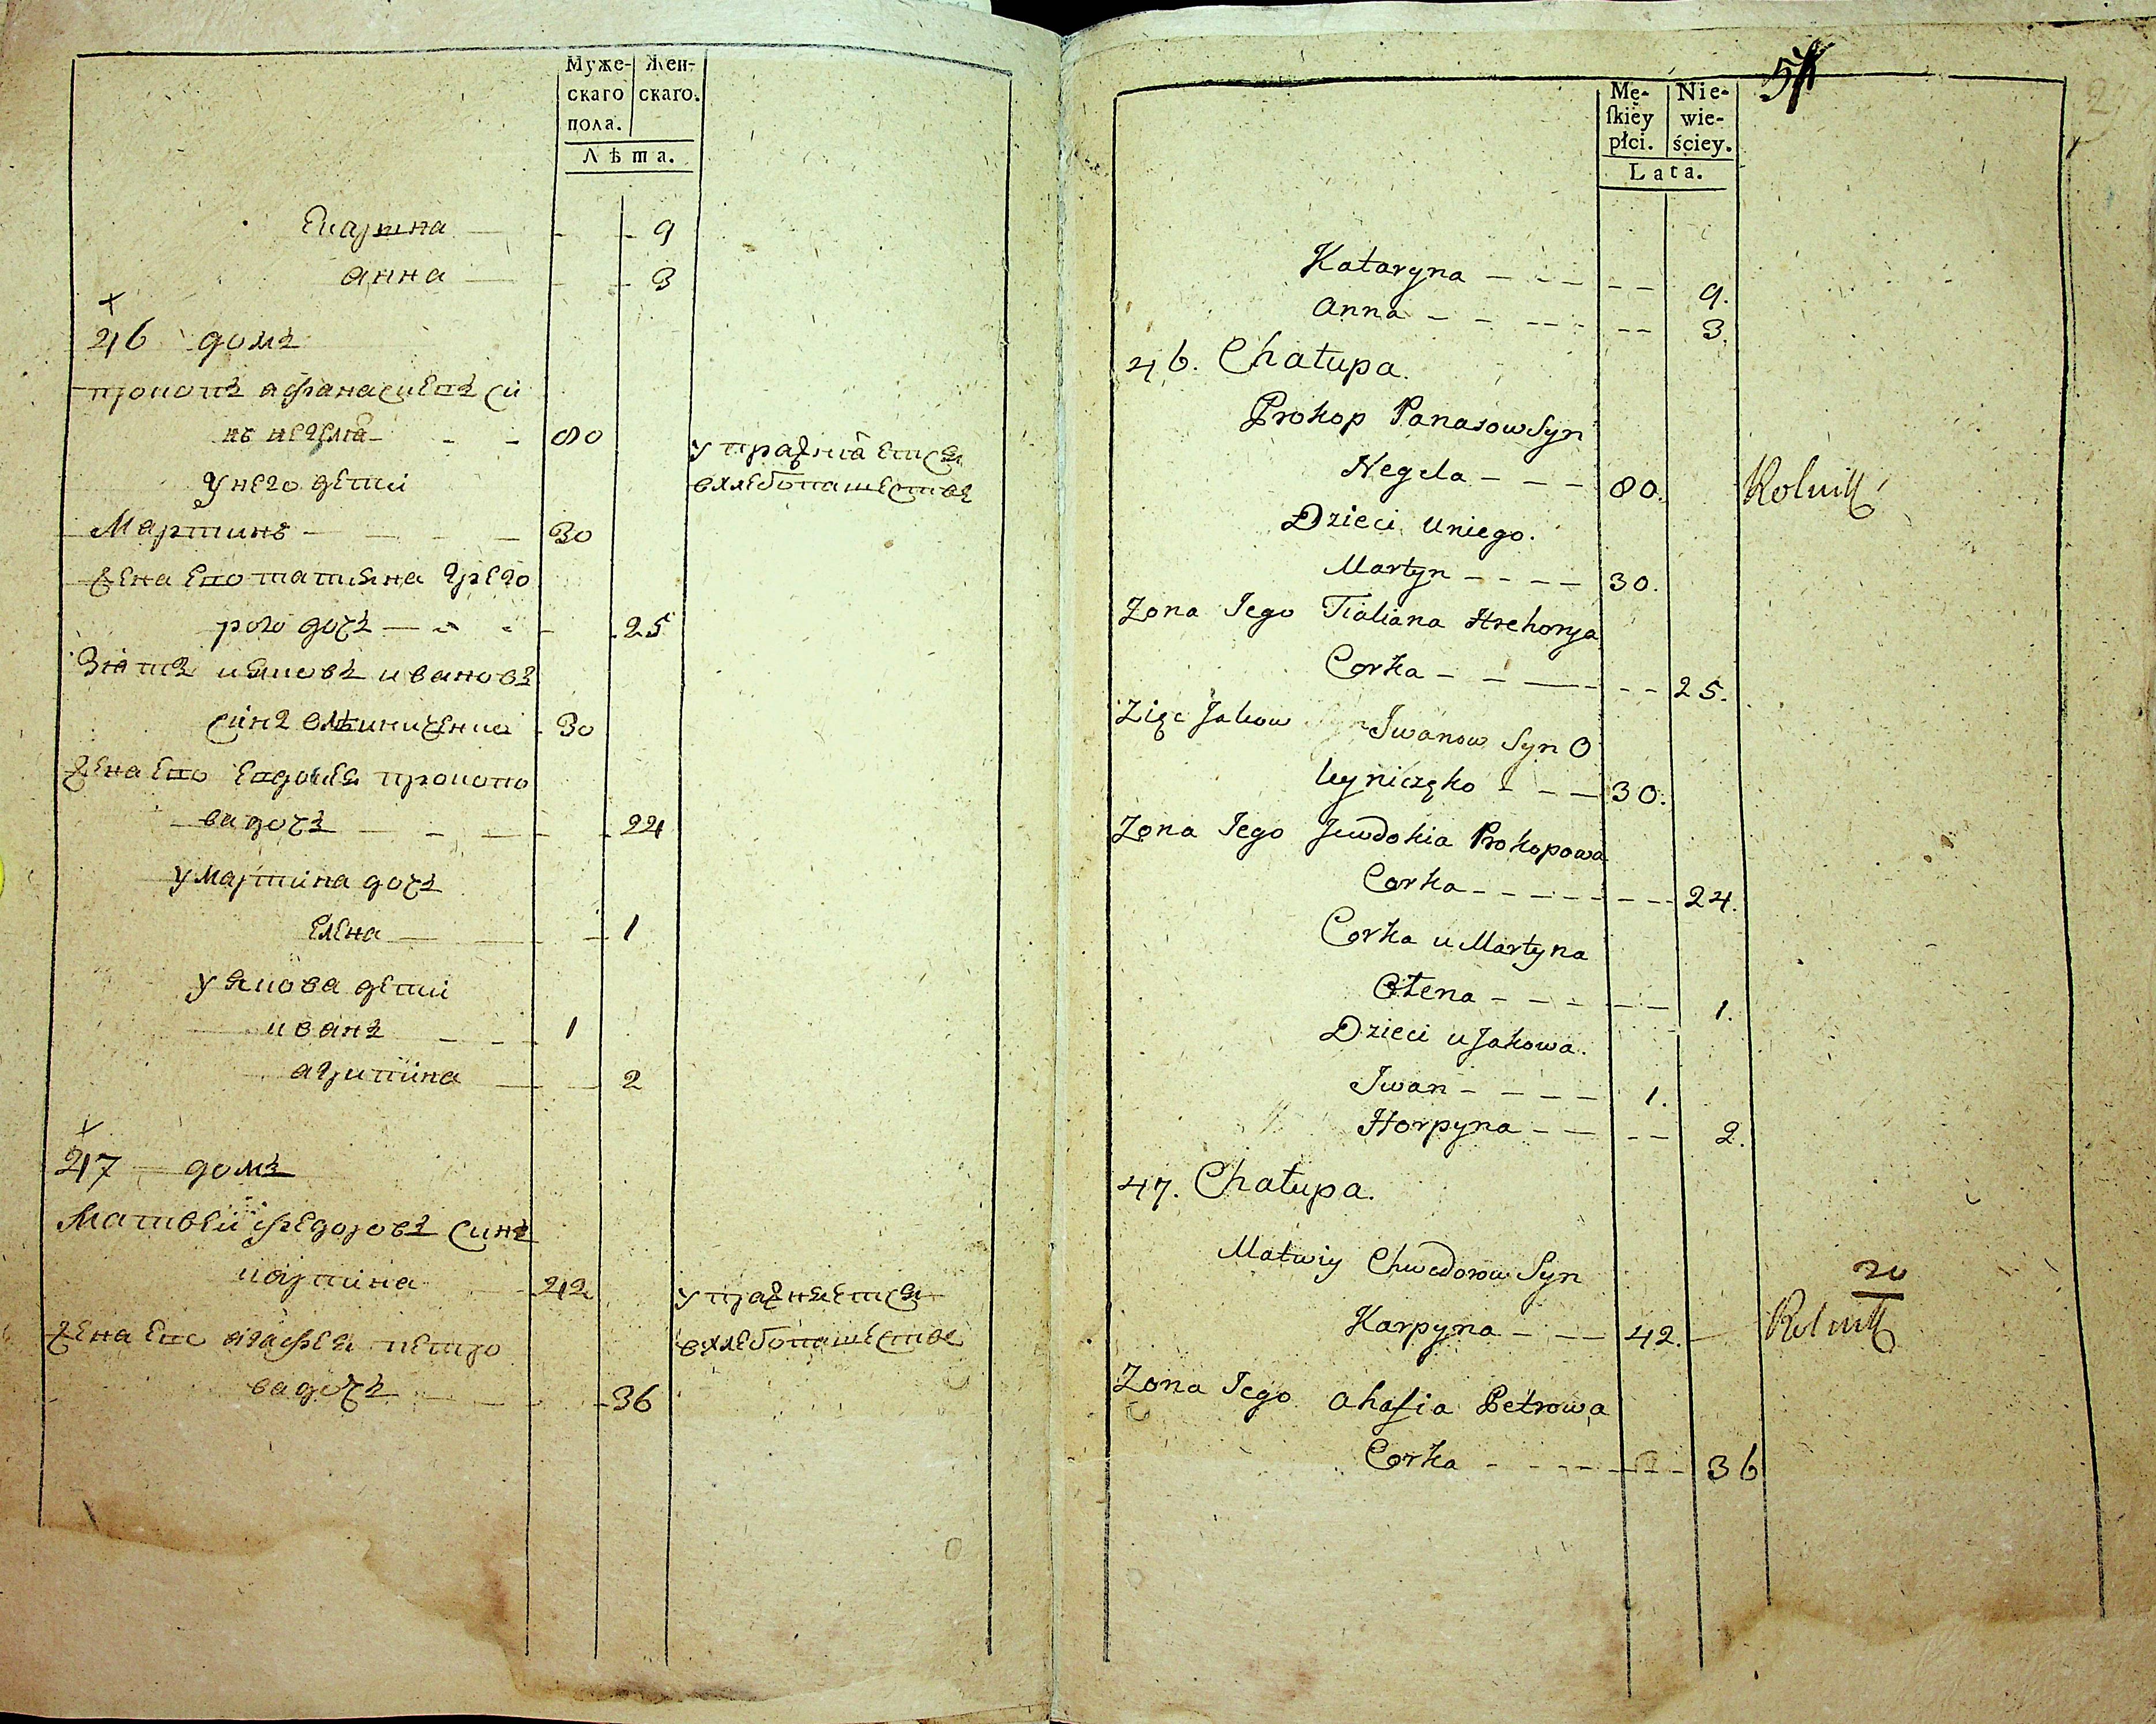 Муже-
скаго
пола.
Жен-
скаго.
Лѣта.
Екатина - - 9
анна - - 3
46 домъ
прокопъ афанасиевъ си
нъ негела - - 80
упражняется
У него дети
вхлебопашестве
Мартинъ - - 30
жена ево татияна григо
рого дочъ - - 25
Зять ияковъ ивановъ
синъ олѣиниченко - 30
жена ево евдокея прокопо
ва дочъ - - 24
у мартина дочъ
елена - - 1
у якова дети
иванъ - - 1
агрипина - - 2
47 домъ
Матвеи федоровъ синъ
карпина - 42
упражняется
вхлебопашестве
жена ево агафея петро
ва дочъ - - 36
Mę-
ſkiey
płci.
Nie-
wie-
ściey.
Lata.
Kataryna - - - - - 9.
Anna - - - - - 3.
46. Chałupa.
Prokop Panasow Syn
Negela - - - 80. Rolnik
Dzieci uniego.
Martyn - - - - 30.
Zona Jego Tatiana Hrehorya
Corka - - - - - 25.
Zięc Jakow Jwanow Syn O
leyniczęko - - - 30.
Zona Jego Jewdokia Prokopowa
Corka - - - - - - 24.
Corka u Martyna
Ołena - - - - - 1.
Dzieci u Jakowa.
Jwan - - - - 1.
Horpyna - - - - 2.
47. Chałupa.
Matwiy Chwedorow Syn
Karpyna - - - 42. - Rolnik
Zona Jego Ahafia Petrowa
Corka - - - - - - 36